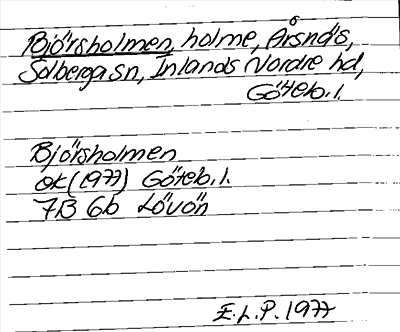 Björsholmen, holme, Årsnäs,
Solberga sn, Inlands Nordre hd,
Göteb. l.
Björsholmen
ek (1977) Göteb. l.
7B 6b Lövön
E. L. P. 1977